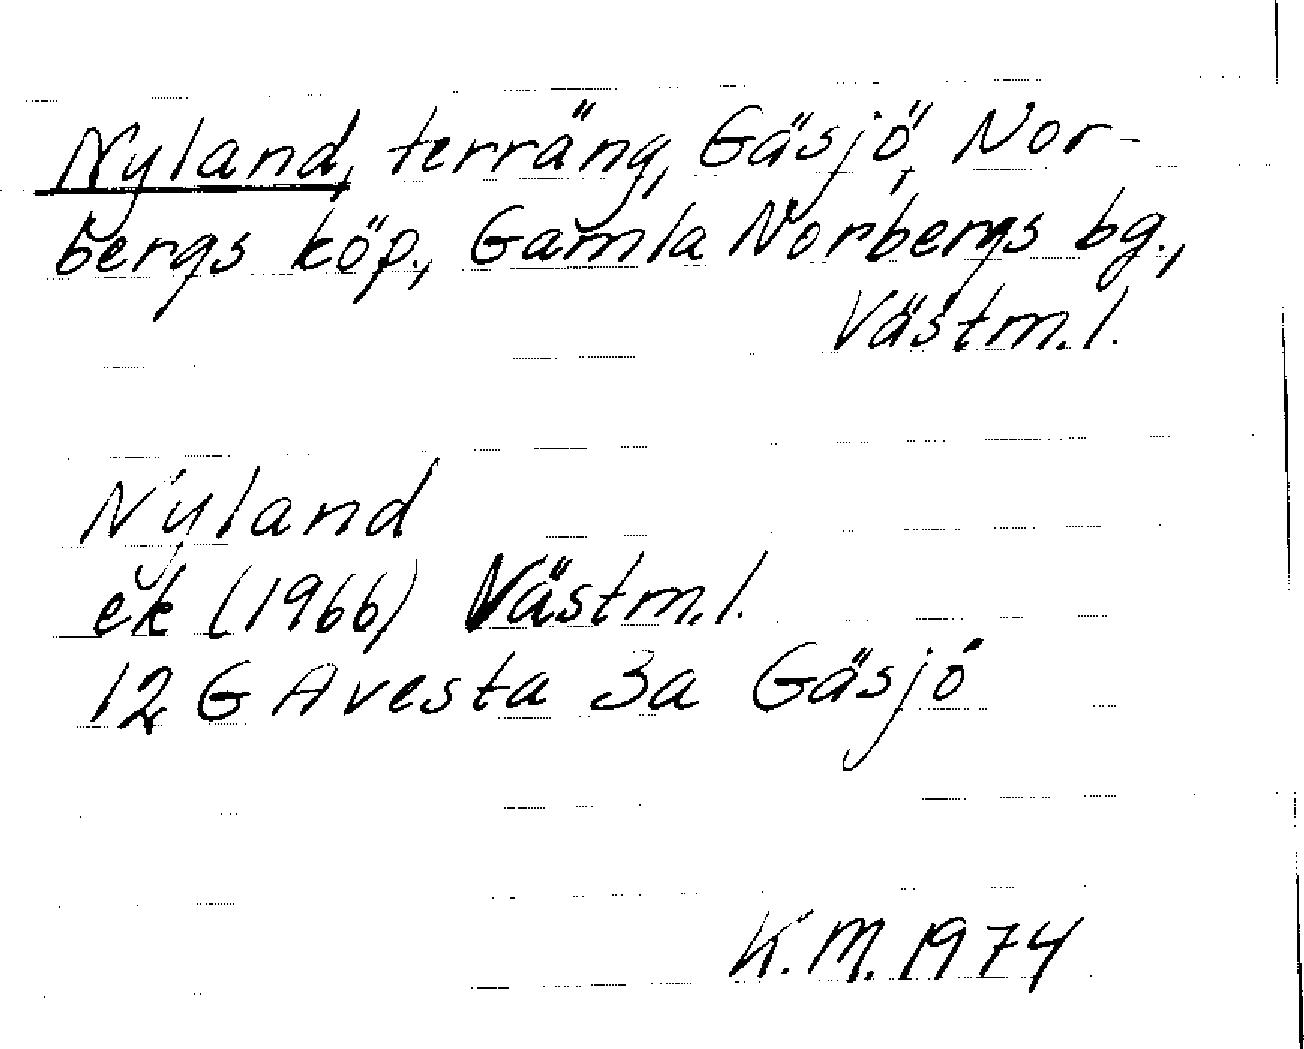 Nyland, terräng, Gäsjö, Nor-
bergs köp., Gamla Norbergs bg.,
Västm.l.
Nyland
ek (1966) Västm.l.
12 G Avesta 3a Gäsjö
K.M. 1974